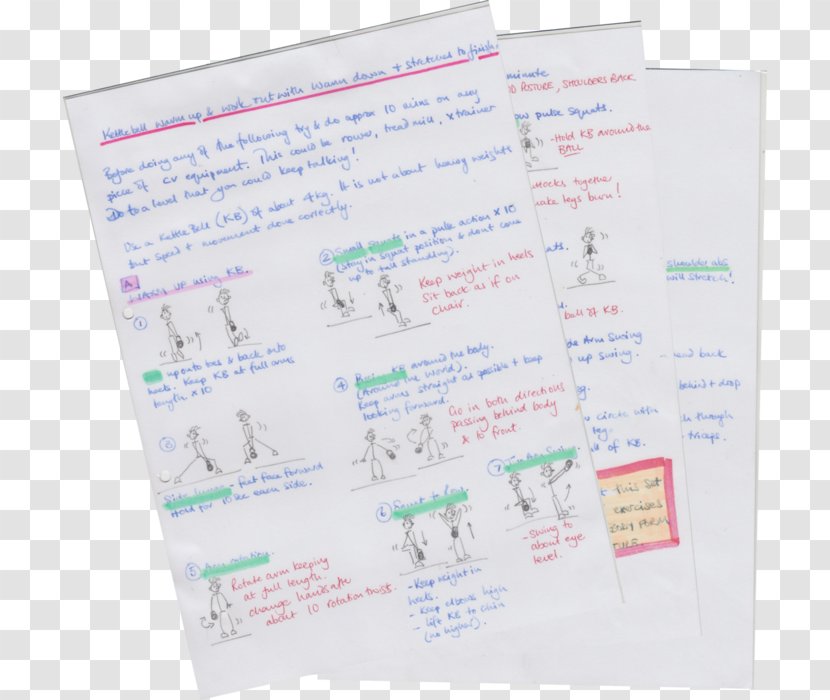 Kettlebell warm up & work out with warm down + stretches to finish.
Before doing any of the following try & do approx 10 mins on any
piece of CV equipment. This could be rower, tread mill, x trainer
Do to a level that you could keep talking!
Use a Kettle Bell (KB) of about 4kg. It is not about heavy weights
but speed + movement done correctly.
A
WARM UP using KB.
1
up onto toes & back onto
heels. Keep KB at full arms
length x 10
2 Small squats in a pulse action x 10
(stay in squat position & dont come
up to tall standing).
Keep weight in heels
Sit back as if on
chair.
3
Side lunges - feet face forward
Hold for 10 sec each side.
4 KB around the body.
(Around the world).
Keep arms straight as possible + keep
looking forward.
Go in both directions
passing behind body
& to front.
5 Arm rotation.
Rotate arm keeping
at full length.
change hands after
about 10 rotation
6 Squat to Row.
- Keep weight in
heels.
- Keep elbows high
- lift KB to chin
(no higher).
7 Arm Swing
- Swing to
about eye
level.
minute
POSTURE, SHOULDERS BACK
pulse squats.
- Hold KB around the
BALL
together
make legs burn!
ball of KB.
Arm Swing
up swing.
circle with
leg.
of KB.
this set
exercises
FORM
shoulder abs
will stretch!
head back
behind + drop
through
triceps.